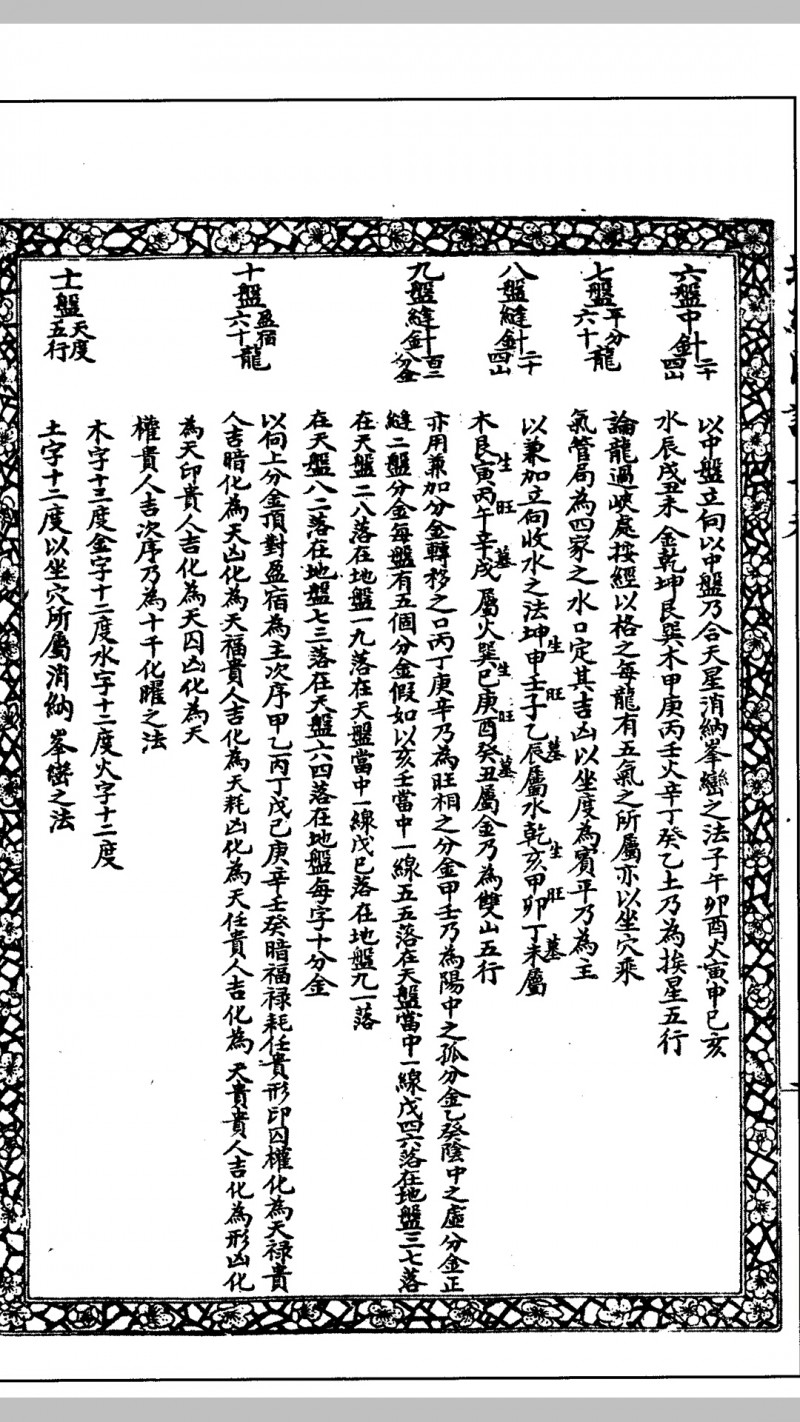 六盤中針二十四山
以中盤立向以中盤乃合天星消納峯巒之法子午卯酉火寅申巳亥
水辰戌丑未金乾坤艮巽木甲庚丙壬火辛丁癸乙土乃為挨星五行
七盤平分六十龍
論龍過峽處按經以格之每龍有五氣之所屬亦以坐穴乘
氣管局為四家之水口定其吉凶以坐度為賓平乃為主
八盤縫針二十四山
以兼加立向收水之法坤申壬子乙辰屬水乾亥甲卯丁未屬
生旺墓生旺墓
木艮寅丙午辛戌屬火巽巳庚酉癸丑屬金乃為雙山五行
生旺墓生旺墓
九盤縫針百二分金
亦用兼加分金轉移之口丙丁庚辛乃為旺相之分金甲壬乃為陽中之孤分金乙癸陰中之虛分金正
縫二盤分金每盤有五個分金假如以亥壬當中一線五五落在天盤當中一線戊四六落在地盤三七落
在天盤二八落在地盤一九落在天盤當中一線戊巳落在地盤九一落
在天盤八二落在地盤七三落在天盤六四落在地盤每字十分金
十盤盈宿六十龍
以向上分金頂對盈宿為主次序甲乙丙丁戊己庚辛壬癸暗福祿耗任貴形印囚權化為天祿貴
人吉暗化為天凶化為天福貴人吉化為天耗凶化為天任貴人吉化為天貴貴人吉化為形凶化
為天印貴人吉化為天囚凶化為天
權貴人吉次序乃為十千化曜之法
十一盤天度五行
木字十三度金字十二度水字十二度火字十二度
土字十二度以坐穴所屬消納峯巒之法